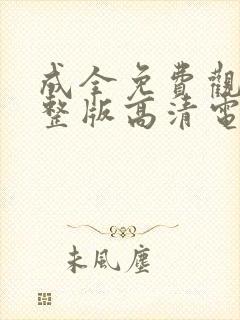 成全免費觀
整版高清電
未風塵